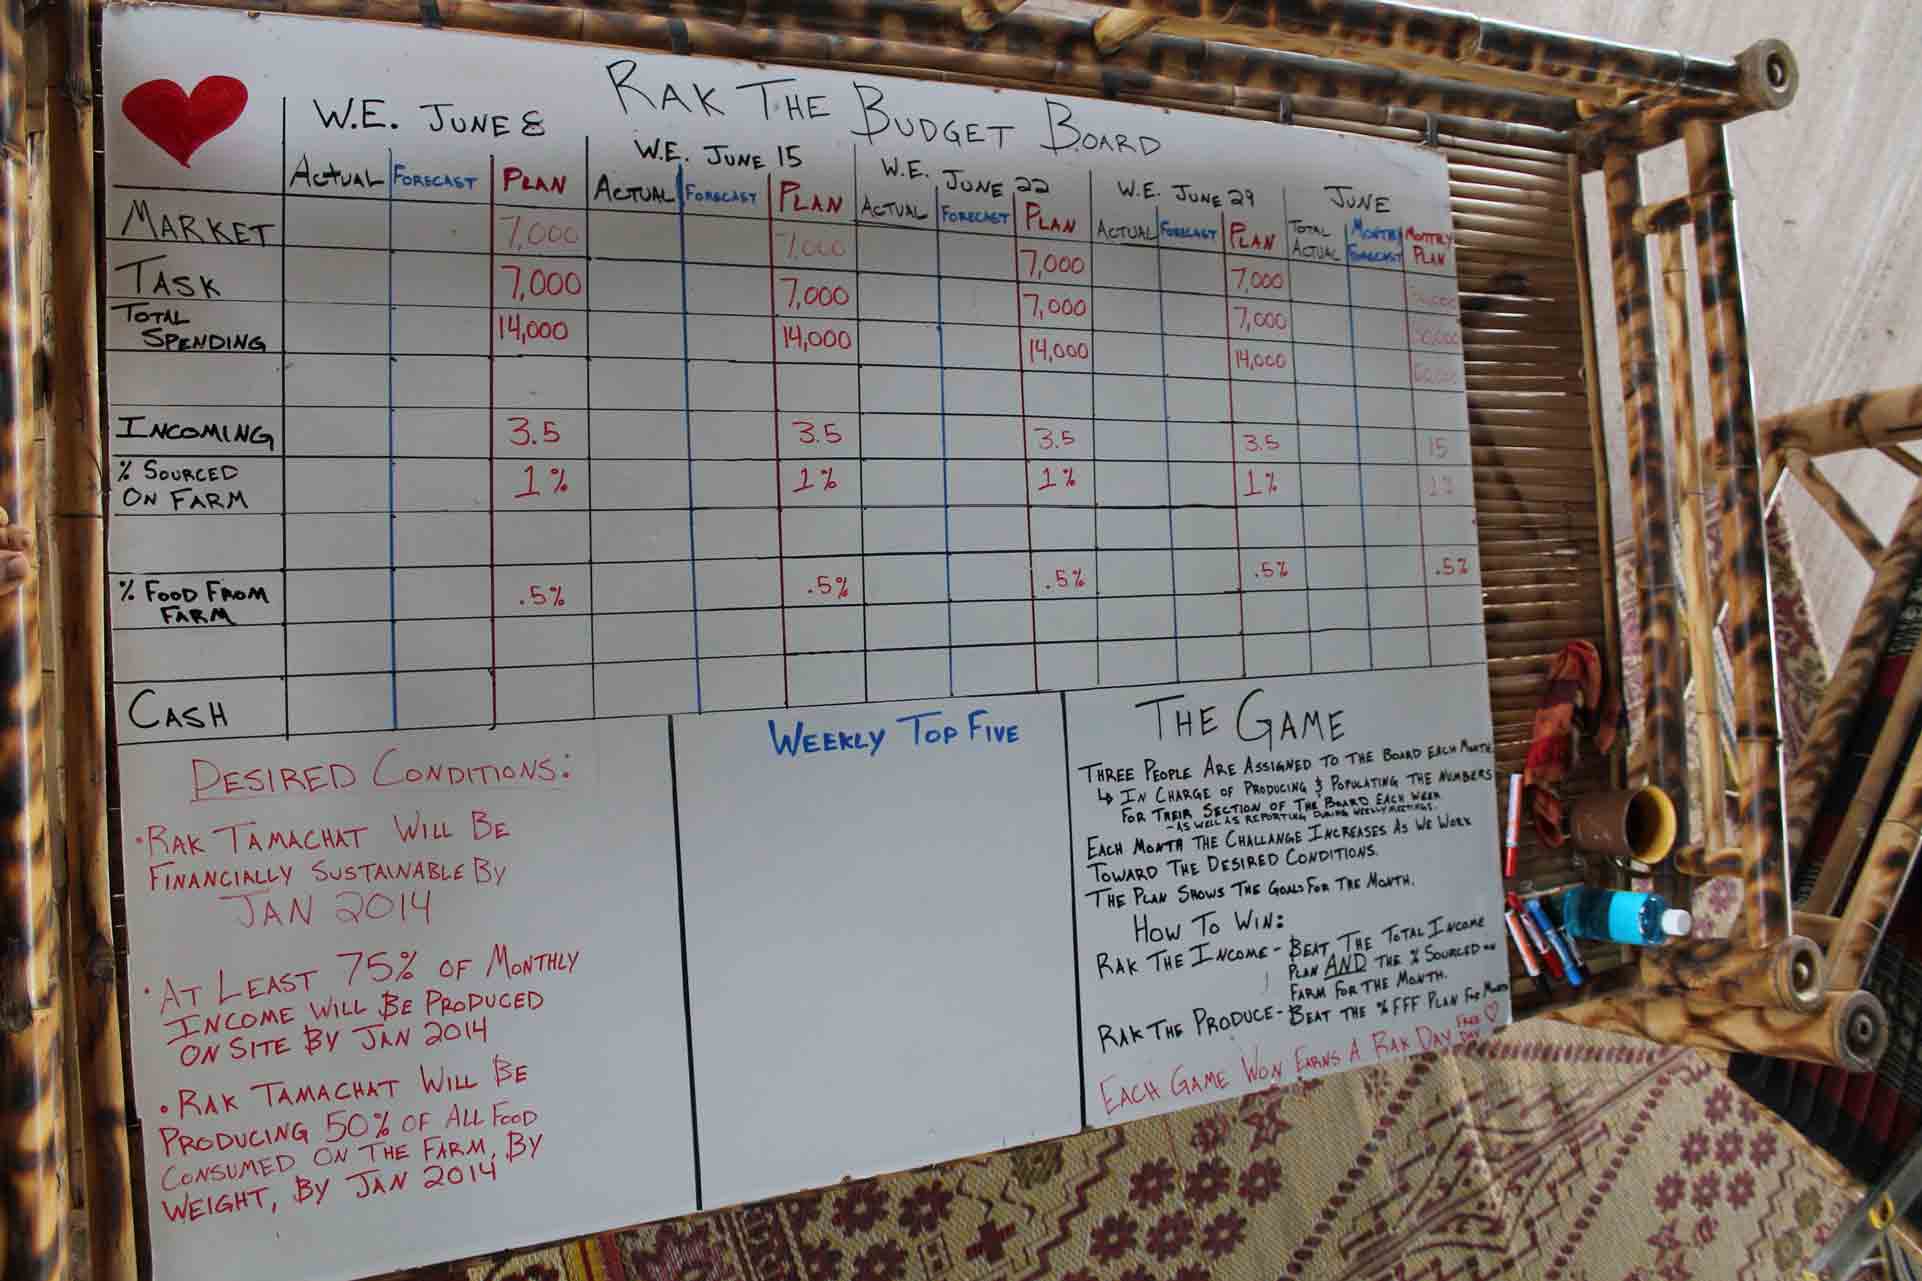 RAK THE BUDGET BOARD
W.E. JUNE 8
W.E. JUNE 15
W.E. JUNE 22
W.E. JUNE 29
JUNE
ACTUAL FORECAST PLAN ACTUAL FORECAST PLAN ACTUAL FORECAST PLAN ACTUAL FORECAST PLAN TOTAL ACTUAL MONTHLY FORECAST MONTHLY PLAN
MARKET 7,000 7,000 7,000 7,000
TASK 7,000 7,000 7,000 7,000
TOTAL SPENDING 14,000 14,000 14,000 14,000
INCOMING 3.5 3.5 3.5 3.5 15
% SOURCED ON FARM 1% 1% 1% 1% 1%
% FOOD FROM FARM .5% .5% .5% .5% .5%
CASH
DESIRED CONDITIONS:
• RAK TAMACHAT WILL BE
FINANCIALLY SUSTAINABLE BY
JAN 2014
• AT LEAST 75% OF MONTHLY
INCOME WILL BE PRODUCED
ON SITE BY JAN 2014
• RAK TAMACHAT WILL BE
PRODUCING 50% OF ALL FOOD
CONSUMED ON THE FARM, BY
WEIGHT, BY JAN 2014
WEEKLY TOP FIVE
THE GAME
THREE PEOPLE ARE ASSIGNED TO THE BOARD EACH MONTH.
↳ IN CHARGE OF PRODUCING & POPULATING THE NUMBERS
FOR THEIR SECTION OF THE BOARD EACH WEEK
- AS WELL AS REPORTING DURING WEEKLY MEETINGS.
EACH MONTH THE CHALLANGE INCREASES AS WE WORK
TOWARD THE DESIRED CONDITIONS.
THE PLAN SHOWS THE GOALS FOR THE MONTH.
HOW TO WIN:
RAK THE INCOME - BEAT THE TOTAL INCOME
PLAN AND THE % SOURCED ON
FARM FOR THE MONTH.
RAK THE PRODUCE - BEAT THE % FFF PLAN FOR MONTH
EACH GAME WON EARNS A RAK DAY FREE DAY ♡